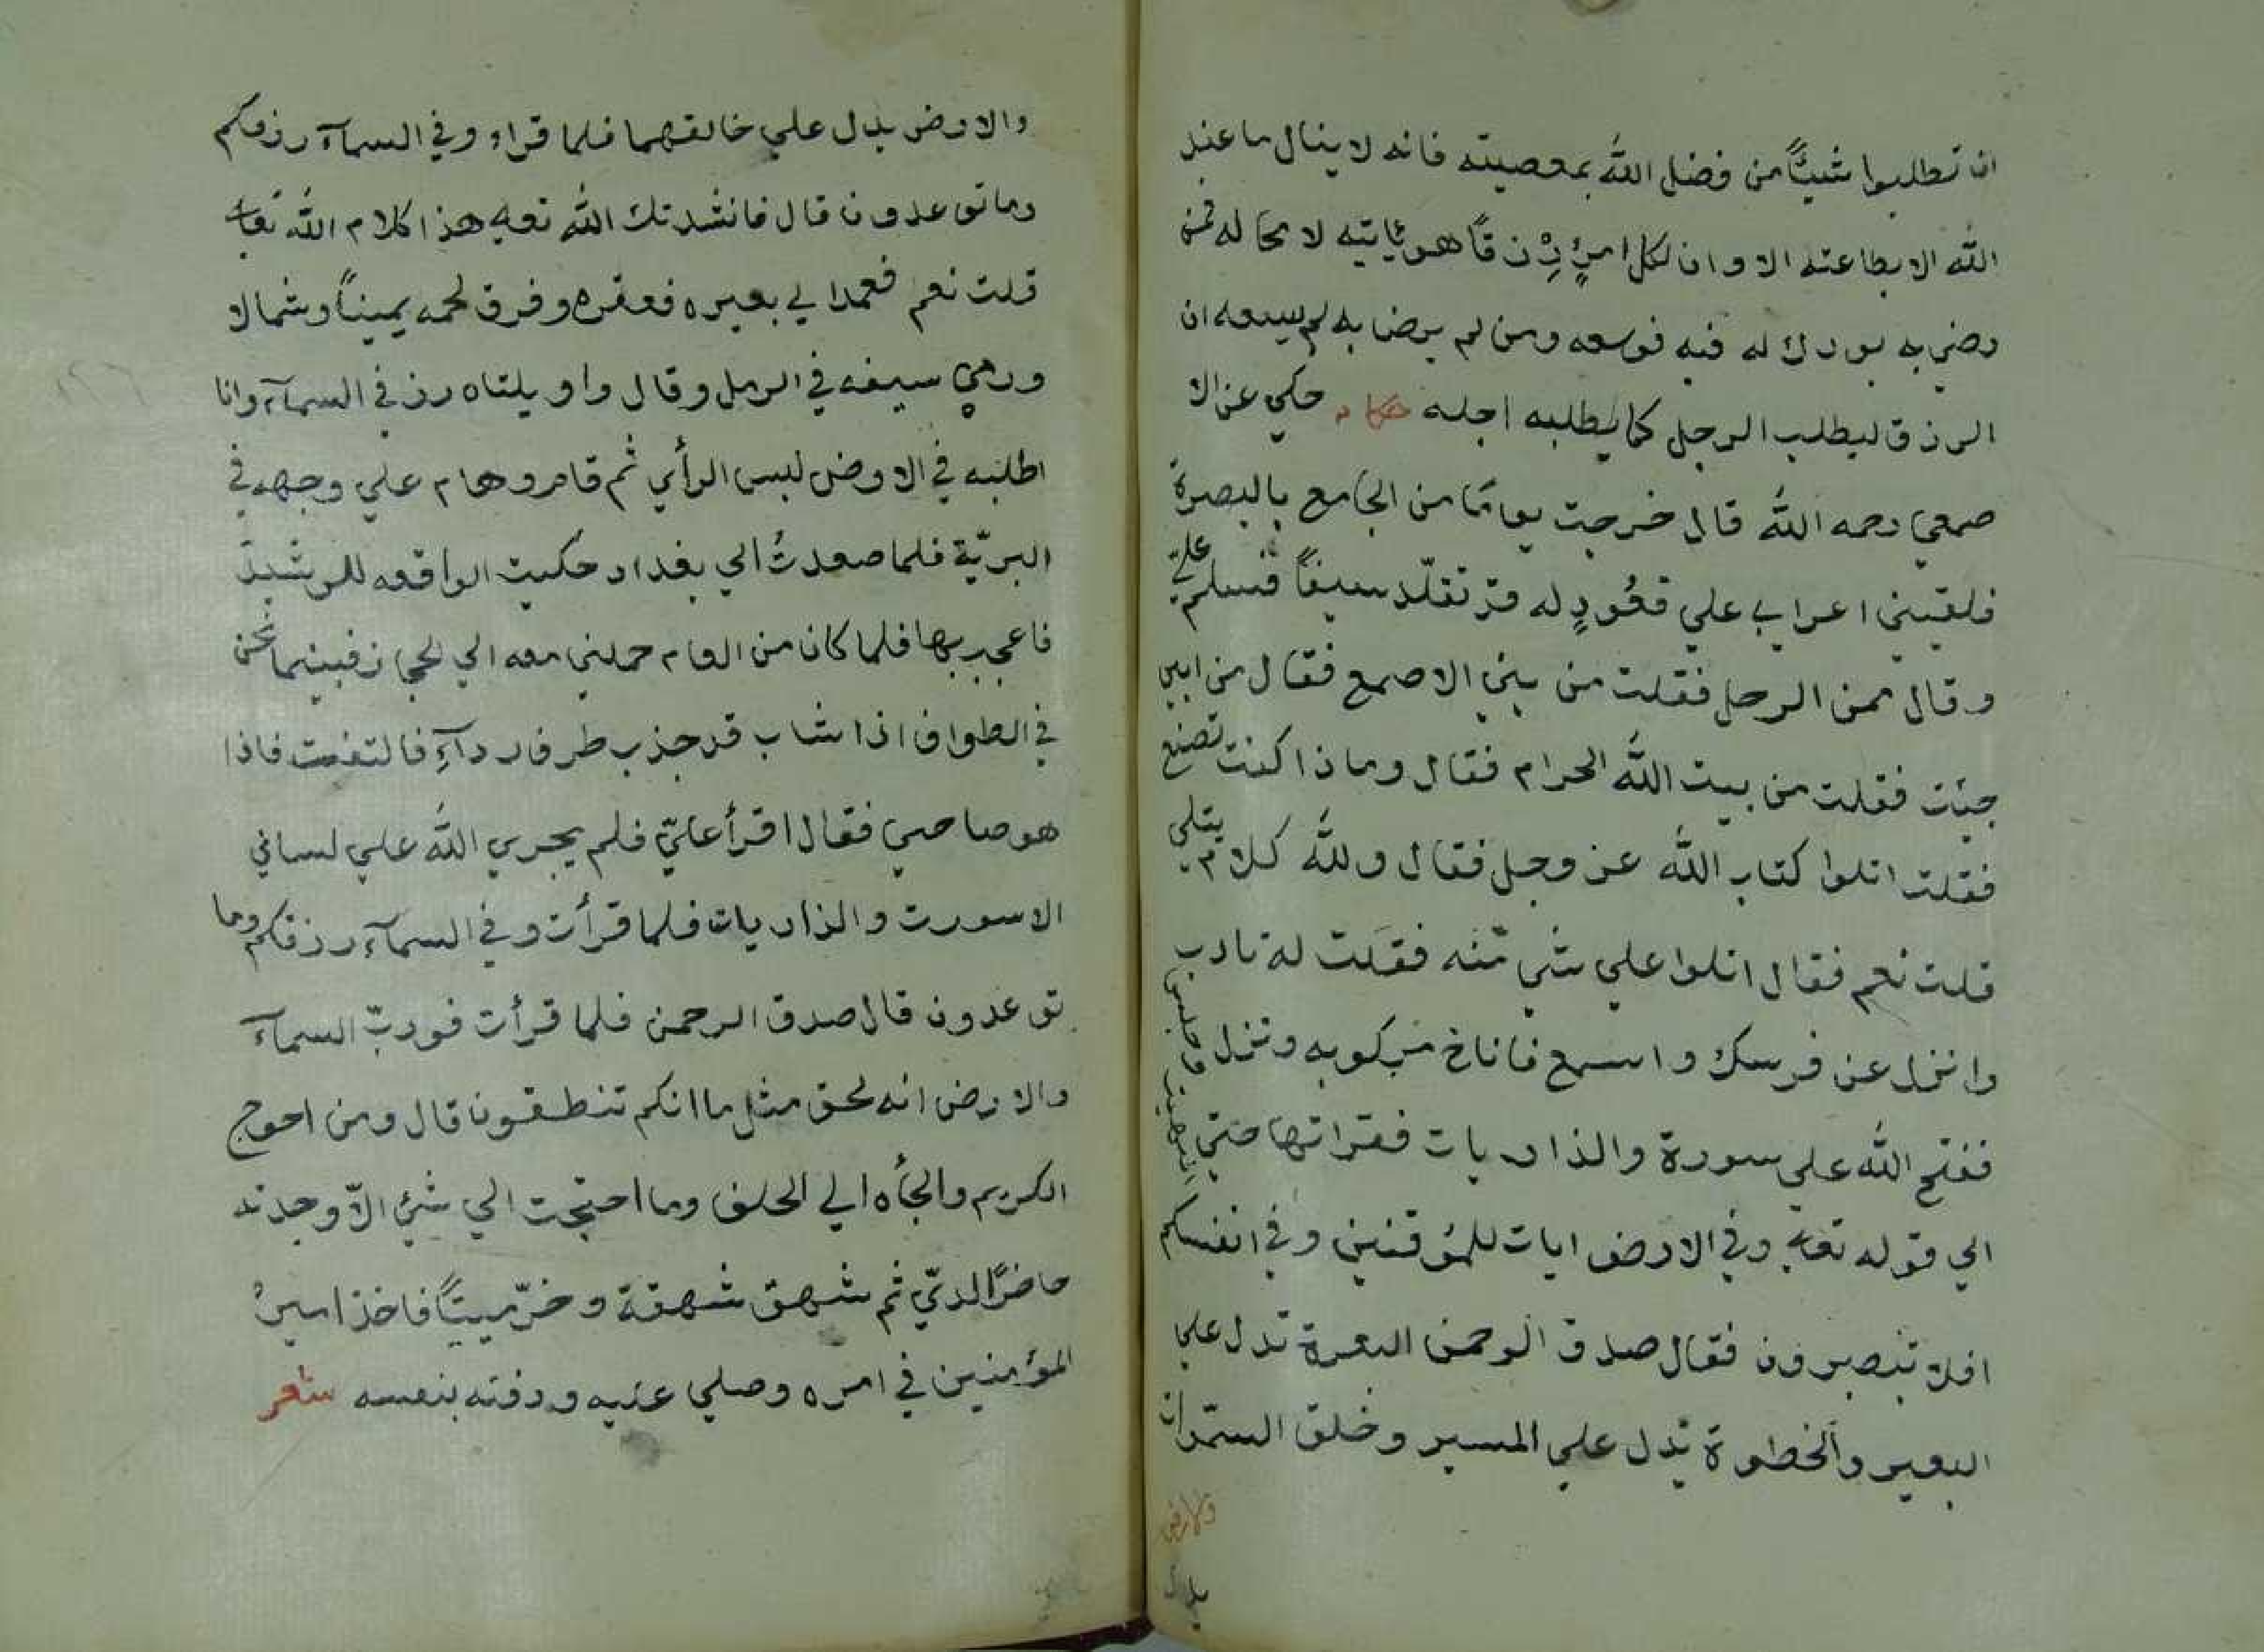 ان تطلبوا شيئًا من فضل الله بمعصيته فانه لا ينال ما عند
الله الا بطاعته الا وان لكل امرئٍ رِزقًا هو ياتيه لا محاله فمن
رضي به بورك له فيه فوسعه ومن لم يرض به لم يسعه ان
الرزق ليطلب الرجل كما يطلبه اجله حكاية حكي عن الا
صمعي رحمه الله قال خرجت يومًا من الجامع بالبصرة
فلقيني اعرابي علي قعُودٍ له قد تقلّد سيفًا فسلم عليّ
وقال ممن الرجل فقلت من بني الاصمع فقال من اين
جيئت فقلت من بيت الله الحرام فقال وماذا كنت تصنع
فقلت اتلوا كتاب الله عز وجل فقال ولله كلام يتلي
قلت نعم فقال اتلوا علي شي مّنه فقلت له تادب
وانزل عن فرسك واسمع فاناخ مركوبه ونزل وجلس
ففتح الله علي سورة والذاريات فقراتها حتي
الي قوله تعالي وفي الارض ايات للمؤقنين وفي انفسكم
افلا تبصرون فقال صدق الرحمن البعرة تدل علي
البعير والخطوة تدل علي المسير وخلق السمّوات
والارض
والارض يدل علي خالقهما فلما قراء وفي السمآء رزقكم
وماتوعدون قال فانشدتك الله تعالي هذا كلام الله تعالي
قلت نعم فعمد الي بعيره فعقره وفرق لحمه يمينًا وشمالا
ورمي سيفه في الرمل وقال واويلتاه رزقي في السمآء وانا
اطلبه في الاوض لبس الرأي ثم قام وهام علي وجهه في
البريّة فلما صعدتُ الي بغداد حكيت الواقعه للرشيد
فاعجب بها فلما كان من العام حملني معه الي الحجاز فبينما نحن
في الطواف اذا شاب قد جذب طرف ردآءِ فالتفت فاذا
هو صاحبي فقال اقرأ عليّ فلم يجري الله علي لساني
الا سورت والذاريات فلما قرأت وفي السمآء رزقكم وما
توعدون قال صدق الرحمن فلما قرأت فوربّ السمآء
والارض انه لحق مثل ما انكم تنطقون قال ومن احوج
الكريم والجأه الي الحلف وما احتجت الي شيءٍ الاّ وجدته
حاضرًا لديّ ثم شهق شهقة وخرّ ميتًا فاخذ اميرُ
المؤمنين في امره وصلي عليه ودفنه بنفسه شعر